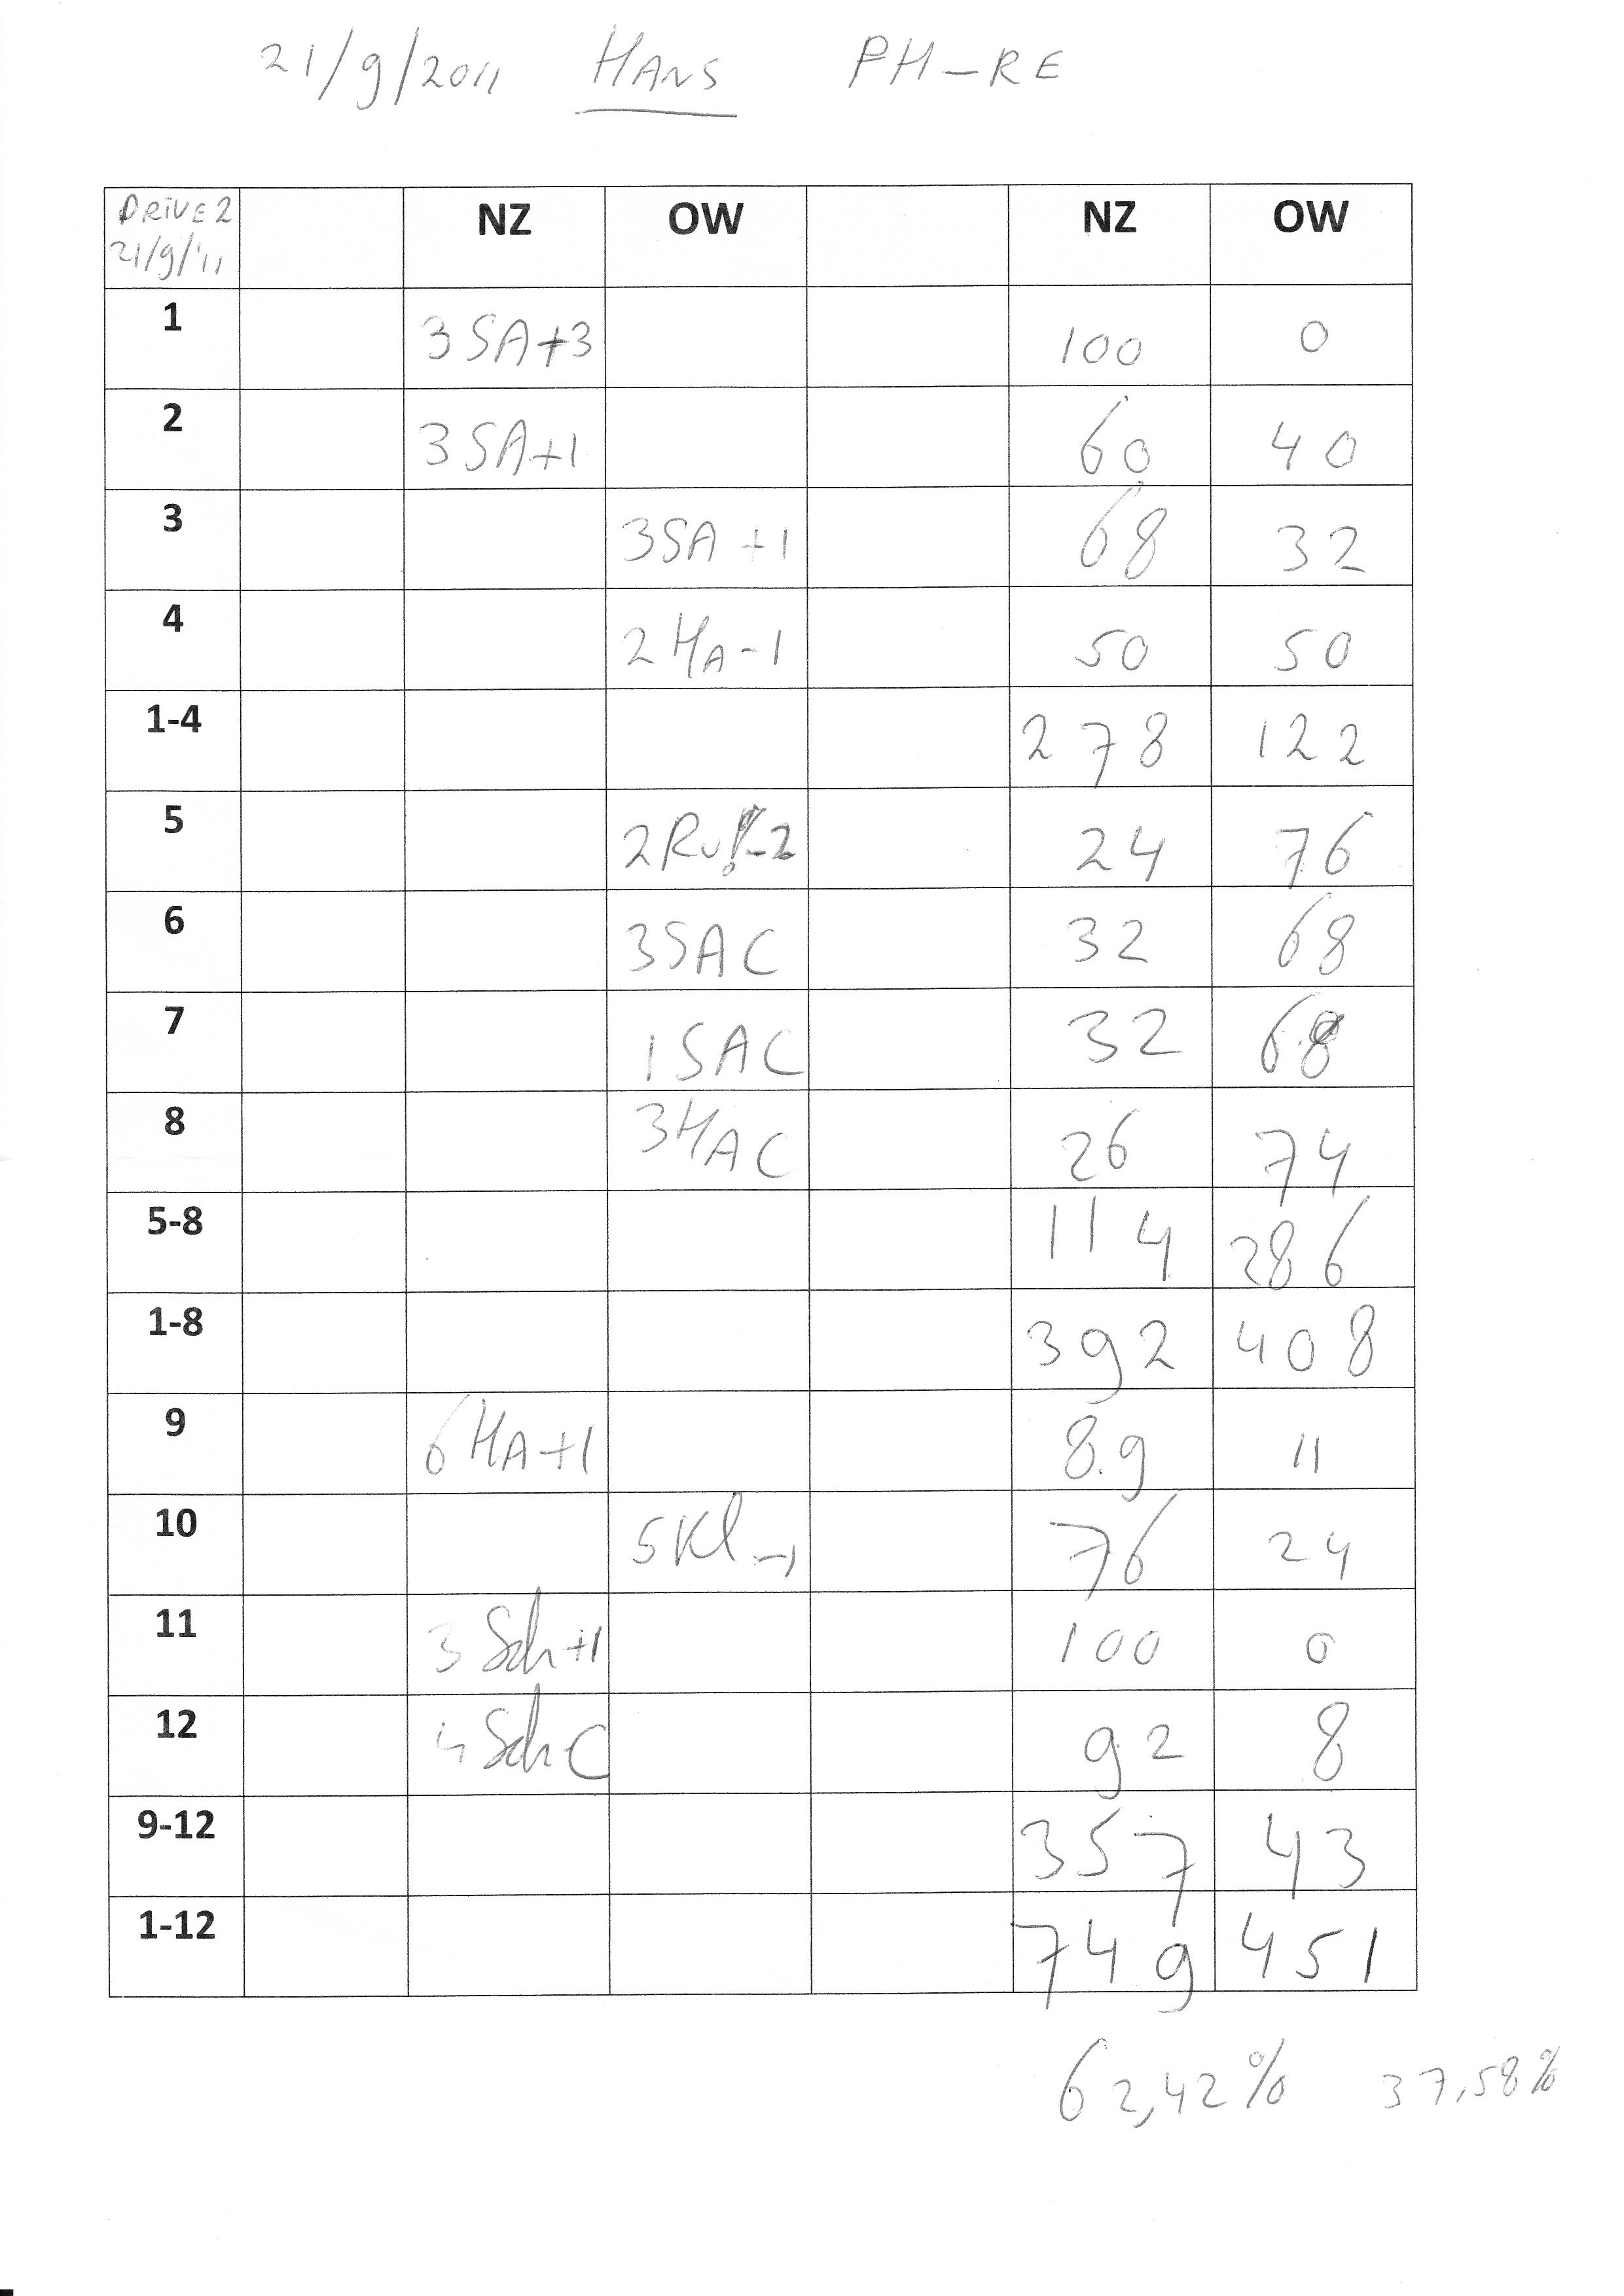 21/9/2011 HANS PH-RE
DRIVE 2 NZ OW NZ OW
21/9/'11
1 3SA+3 100 0
2 3SA+1 60 40
3 3SA+1 68 32
4 2HA-1 50 50
1-4 278 122
5 2Ru!-2 24 76
6 3SAC 32 68
7 1SAC 32 68
8 3HAC 26 74
5-8 114 286
1-8 392 408
9 6HA+1 89 11
10 5Kl-1 76 24
11 3Sch+1 100 0
12 4SchC 92 8
9-12 357 43
1-12 749 451
62,42% 37,58%